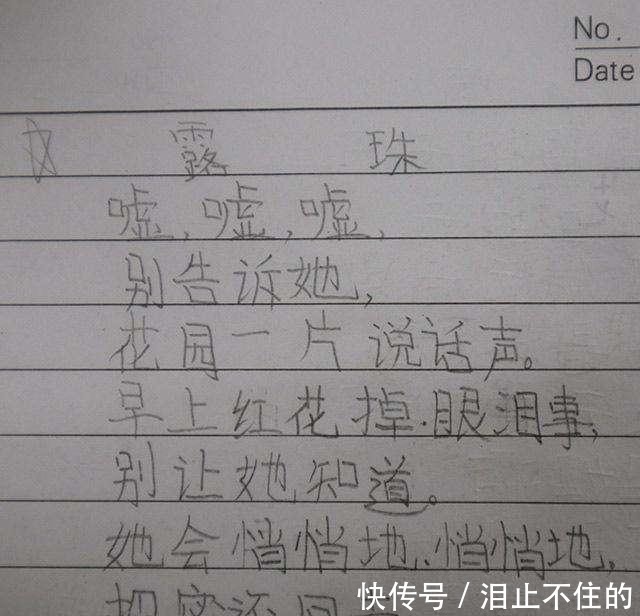 No.
Date
露 珠
嘘,嘘,嘘,
别告诉她,
花园一片说话声。
早上红花掉.眼泪事,
别让她知道。
她会悄悄地.悄悄地,
快传号/泪止不住的